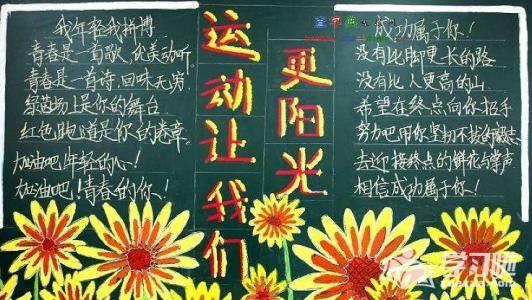 我年轻我拼博
青春是一首歌,优美动听
青春是一首诗,回味无穷
绿茵场上是你的舞台
红色跑道是你的卷章
加油吧!年轻的心!
加油吧!青春的你!
运动让我们
更阳光
成功属于你!
没有比脚更长的路
没有比人更高的山
希望在终点向你招手
努力吧用你坚韧不拔的
去迎接终点的鲜花与掌声
相信成功属于你!
学习啦